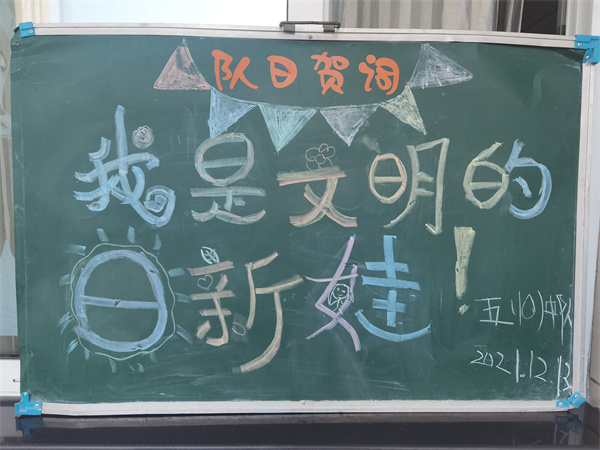 队日贺词
我是文明的
日新娃！
五(10)中队
2021.12.13